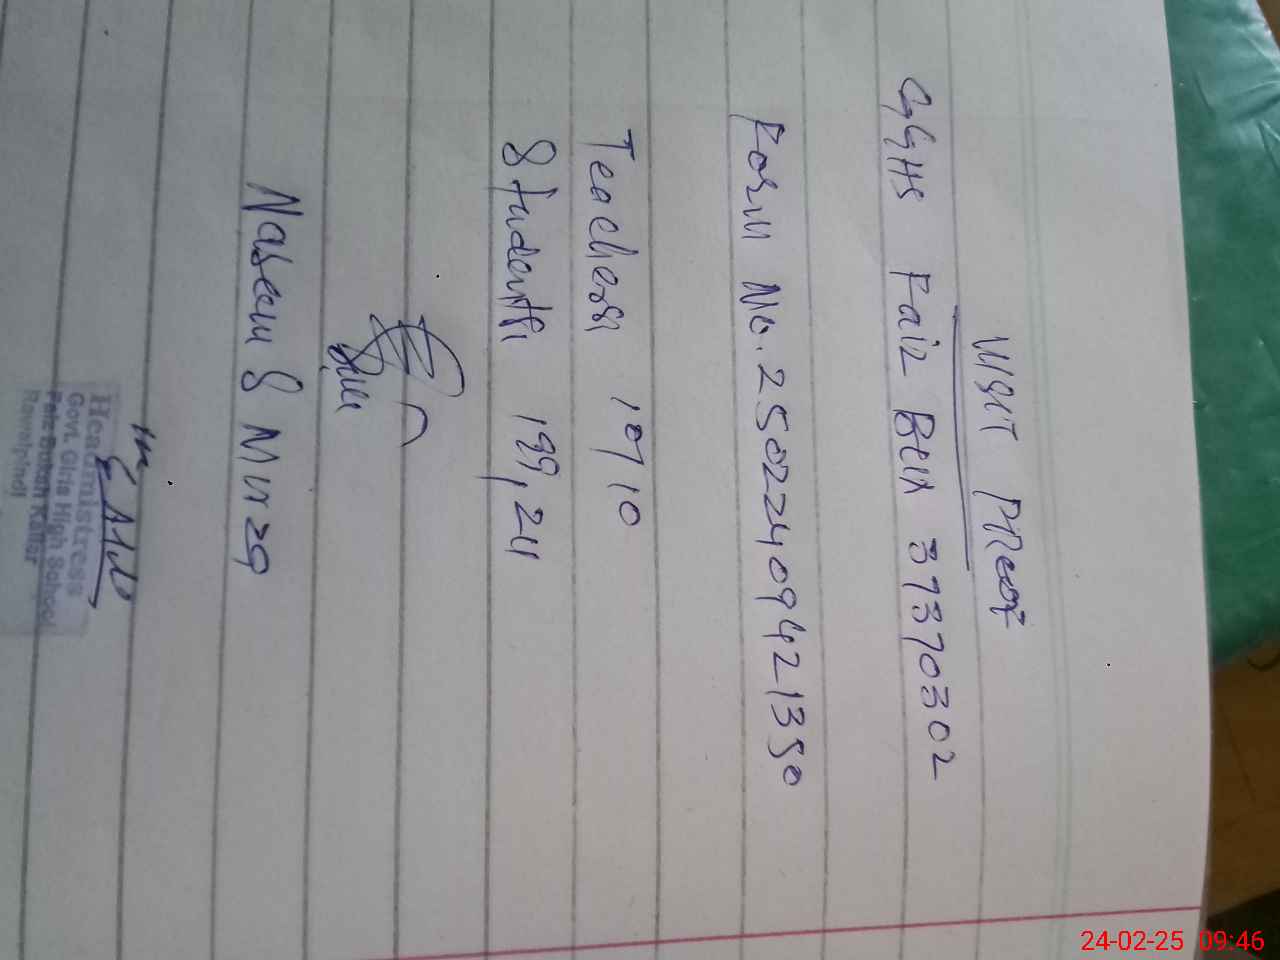 Visit Proof
GGHS Faiz Bux 37370302
Form No. 25022409421350
Teachers 10/10
Students 199, 24
Naseem S Mirza
Headmistress
Govt. Girls High School
Faiz Buksh Kallar
Rawalpindi
24-02-25 09:46